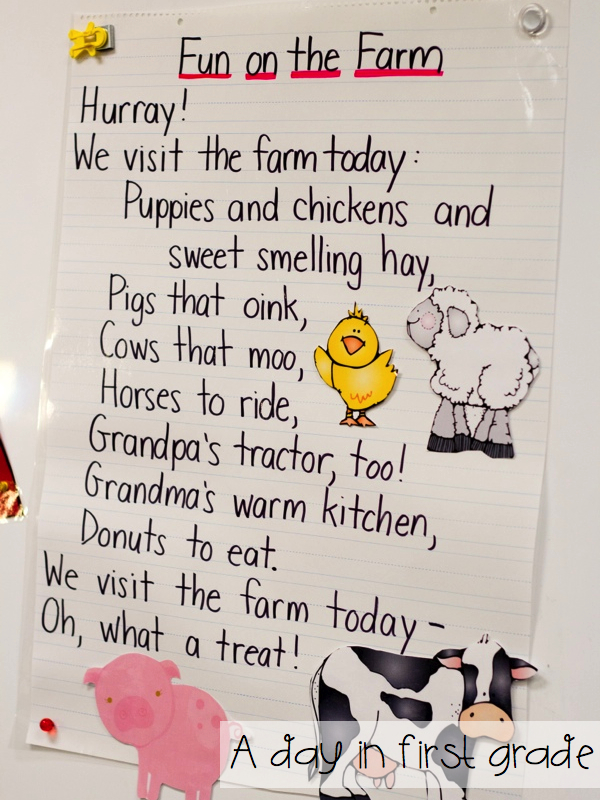 Fun on the Farm
Hurray!
We visit the farm today:
Puppies and chickens and
sweet smelling hay,
Pigs that oink,
Cows that moo,
Horses to ride,
Grandpa's tractor, too!
Grandma's warm kitchen,
Donuts to eat.
We visit the farm today-
Oh, what a treat!
A day in first grade